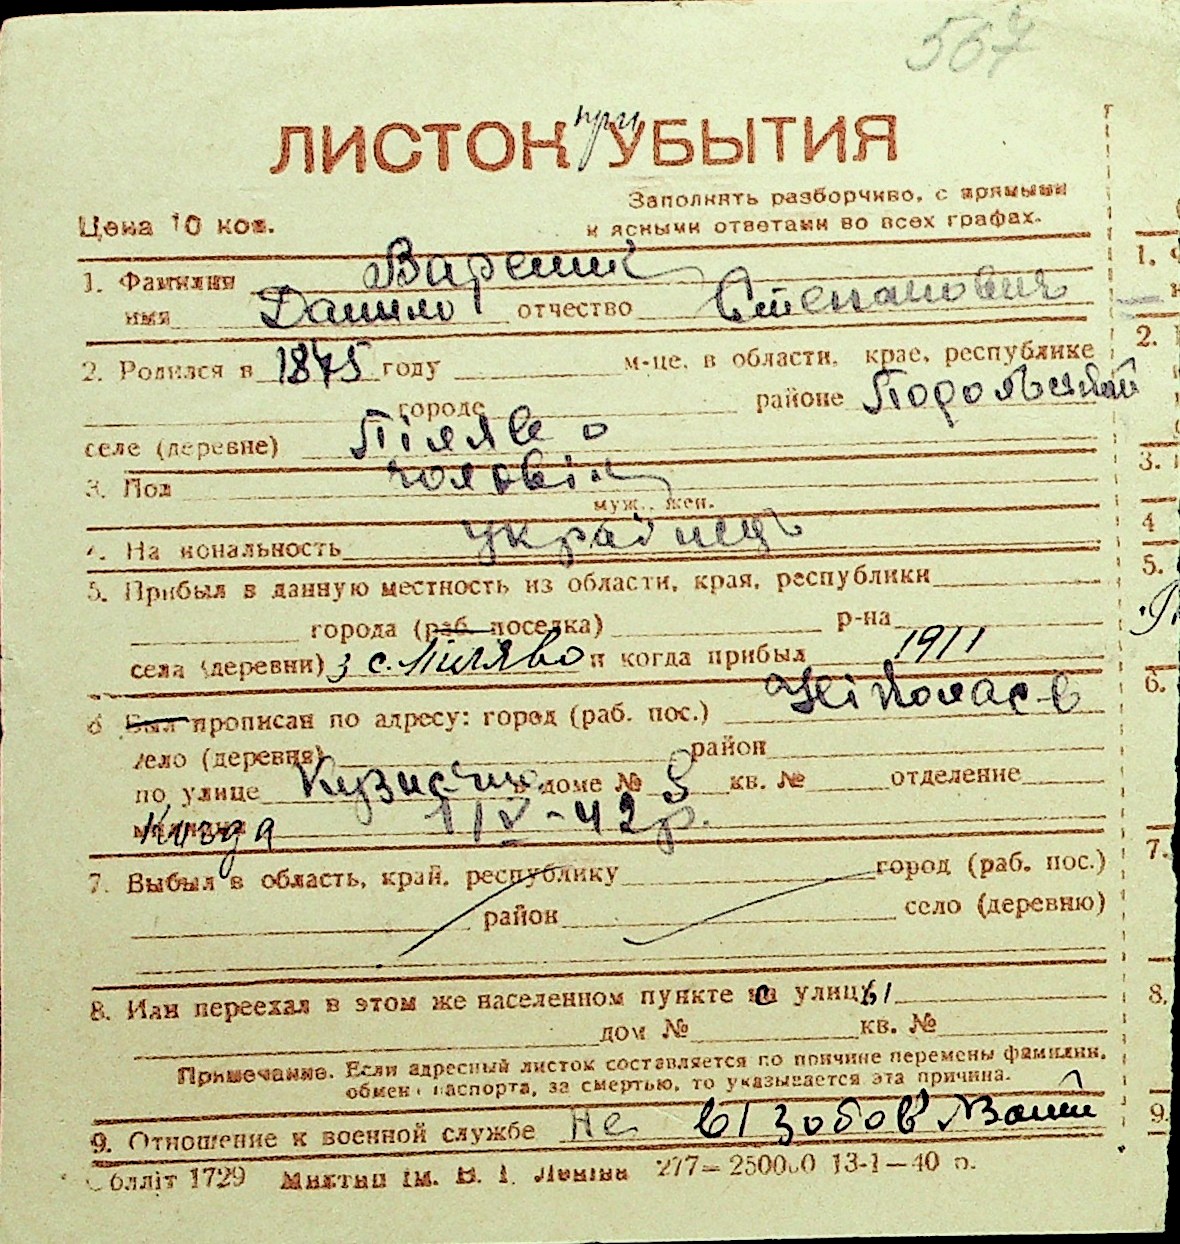 567
ЛИСТОК при УБЫТИЯ
Заполнять разборчиво, с прямыми
Цена 10 коп.
и ясными ответами во всех графах.
1. Фамилия Вареник
имя Данило отчество Степанович
2. Родился в 1875 году м-це, в области, крае, республике
городе районе Подольский
селе (деревне) Піляво
3. Пол чоловік
муж., жен.
4. На иональность українець
5. Прибыл в данную местность из области, края, республики
города (раб. поселка) р-на
села (деревни) з с. Піляво и когда прибыл 1911
6 Был прописан по адресу: город (раб. пос.) Ніколаєв
село (деревня) район
по улице в доме № 8 кв. № отделение
1/V-42 р.
7. Выбыл в область, край, республику город (раб. пос.)
район село (деревню)
8. Или переехал в этом же населенном пункте с улицы
дом № кв. №
Примечание. Если адресный листок составляется по причине перемены фамилии,
обмена паспорта, за смертью, то указывается эта причина.
9. Отношение к военной службе не
Облліт 1729 ім. В. І. Леніна 277—250000 13-1—40 р.
1.
2.
3.
4
5.
6.
7.
8.
9.